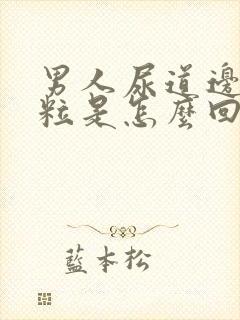 男人尿道邊
粒是怎麼回
藍本松